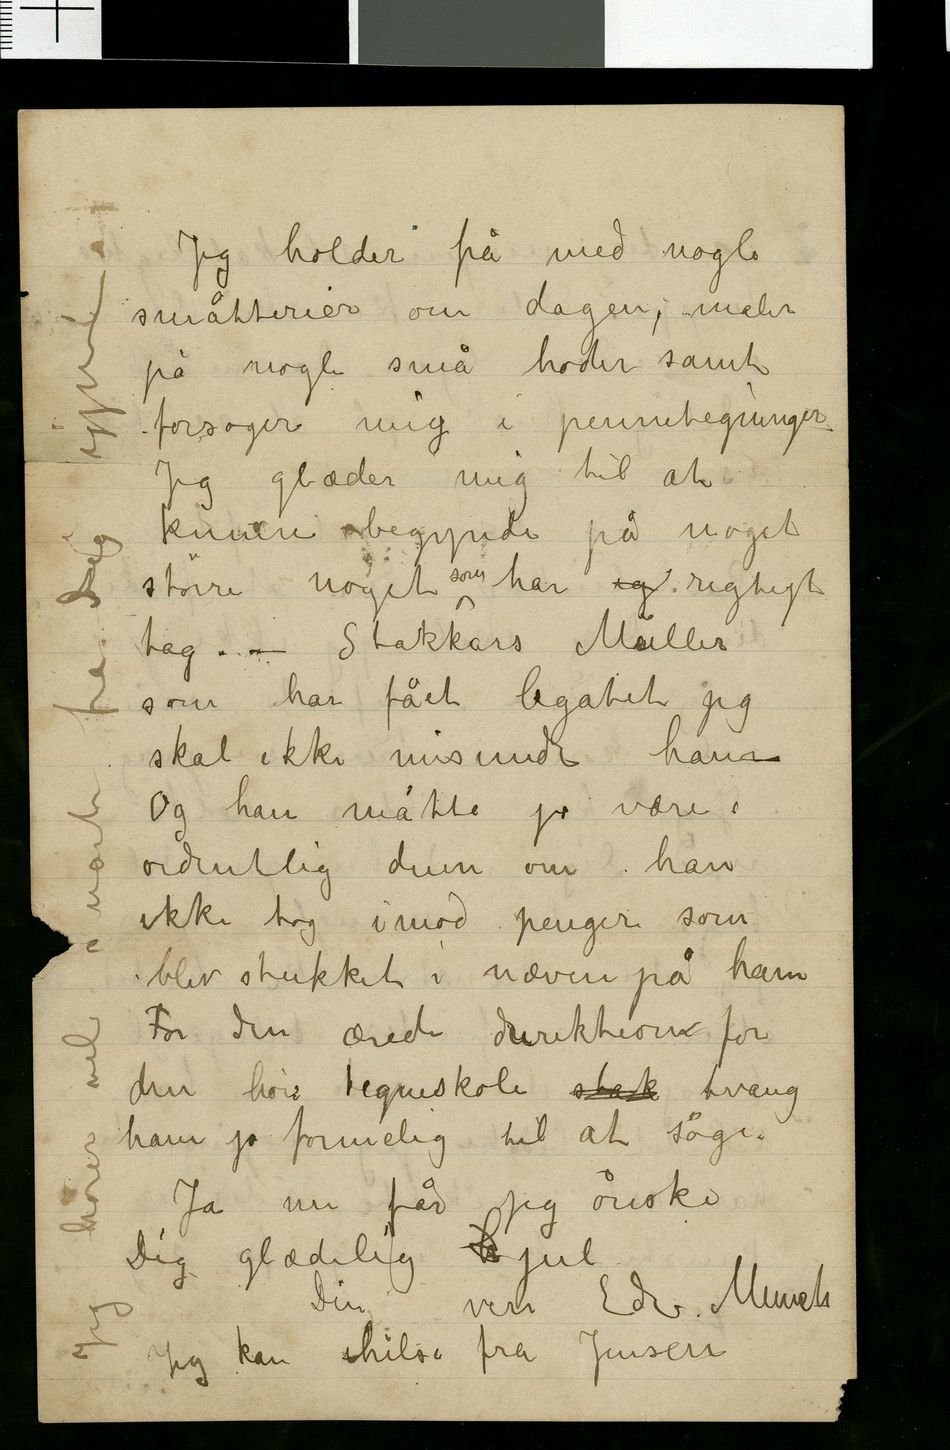 Jeg holder på med nogle
småtterier om dagen, maler
på nogle små hoder samt
forsøger mig i pennetegninger.
Jeg glæder mig til at
kunne begynde på noget
større noget som har rigtigt
tag. — Stakkars Müller
som har fået legatet jeg
skal ikke misunde ham
Og han måtte jo være
ordentlig dum om han
ikke tog imod penger som
blev stukket i næven på ham
For den ærede direktion for
den høie tegneskole stak tvang
ham jo formelig til at søge.
Ja nu får jeg ønske
Dig glædelig jul
Din ven Edv. Munch
Jeg kan hilse fra Jensen
Jeg hører vel snart fra Dig